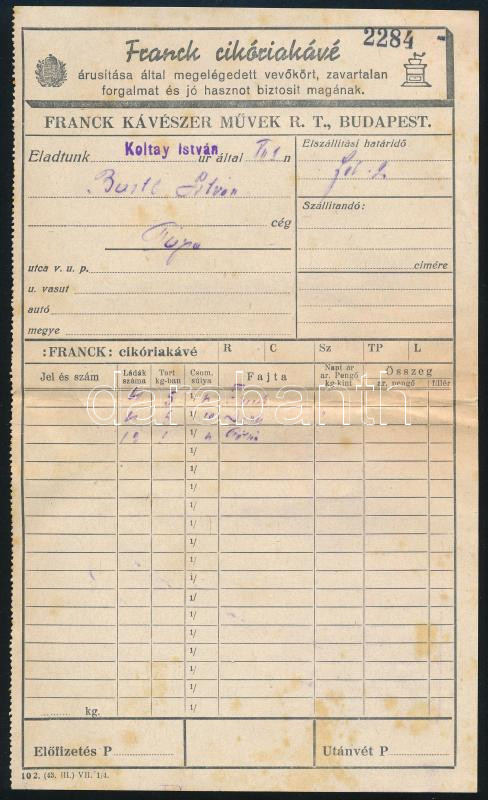 Franck cikóriakávé
2284
árusitása által megelégedett vevőkört, zavartalan
forgalmat és jó hasznot biztosit magának.
FRANCK KÁVÉSZER MŰVEK R. T., BUDAPEST.
Eladtunk Koltay István ur által n
Elszállitási határidő
István
cég
Szállitandó:
utca v. u. p.
címére
u. vasut
autó
megye
:FRANCK: cikóriakávé R C Sz TP L
Jel és szám Ládák száma Tart kg-ban Csom. súlya Fajta Napi ár ar. Pengő kg-kint Összeg ar. pengő fillér
1/
1/
1/
1/
1/
1/
1/
1/
1/
1/
1/
1/
1/
1/
1/
1/
1/
1/
kg. 1/
darabanth
Előfizetés P
Utánvét P
10 2. (43. III.) VII. 1/4.